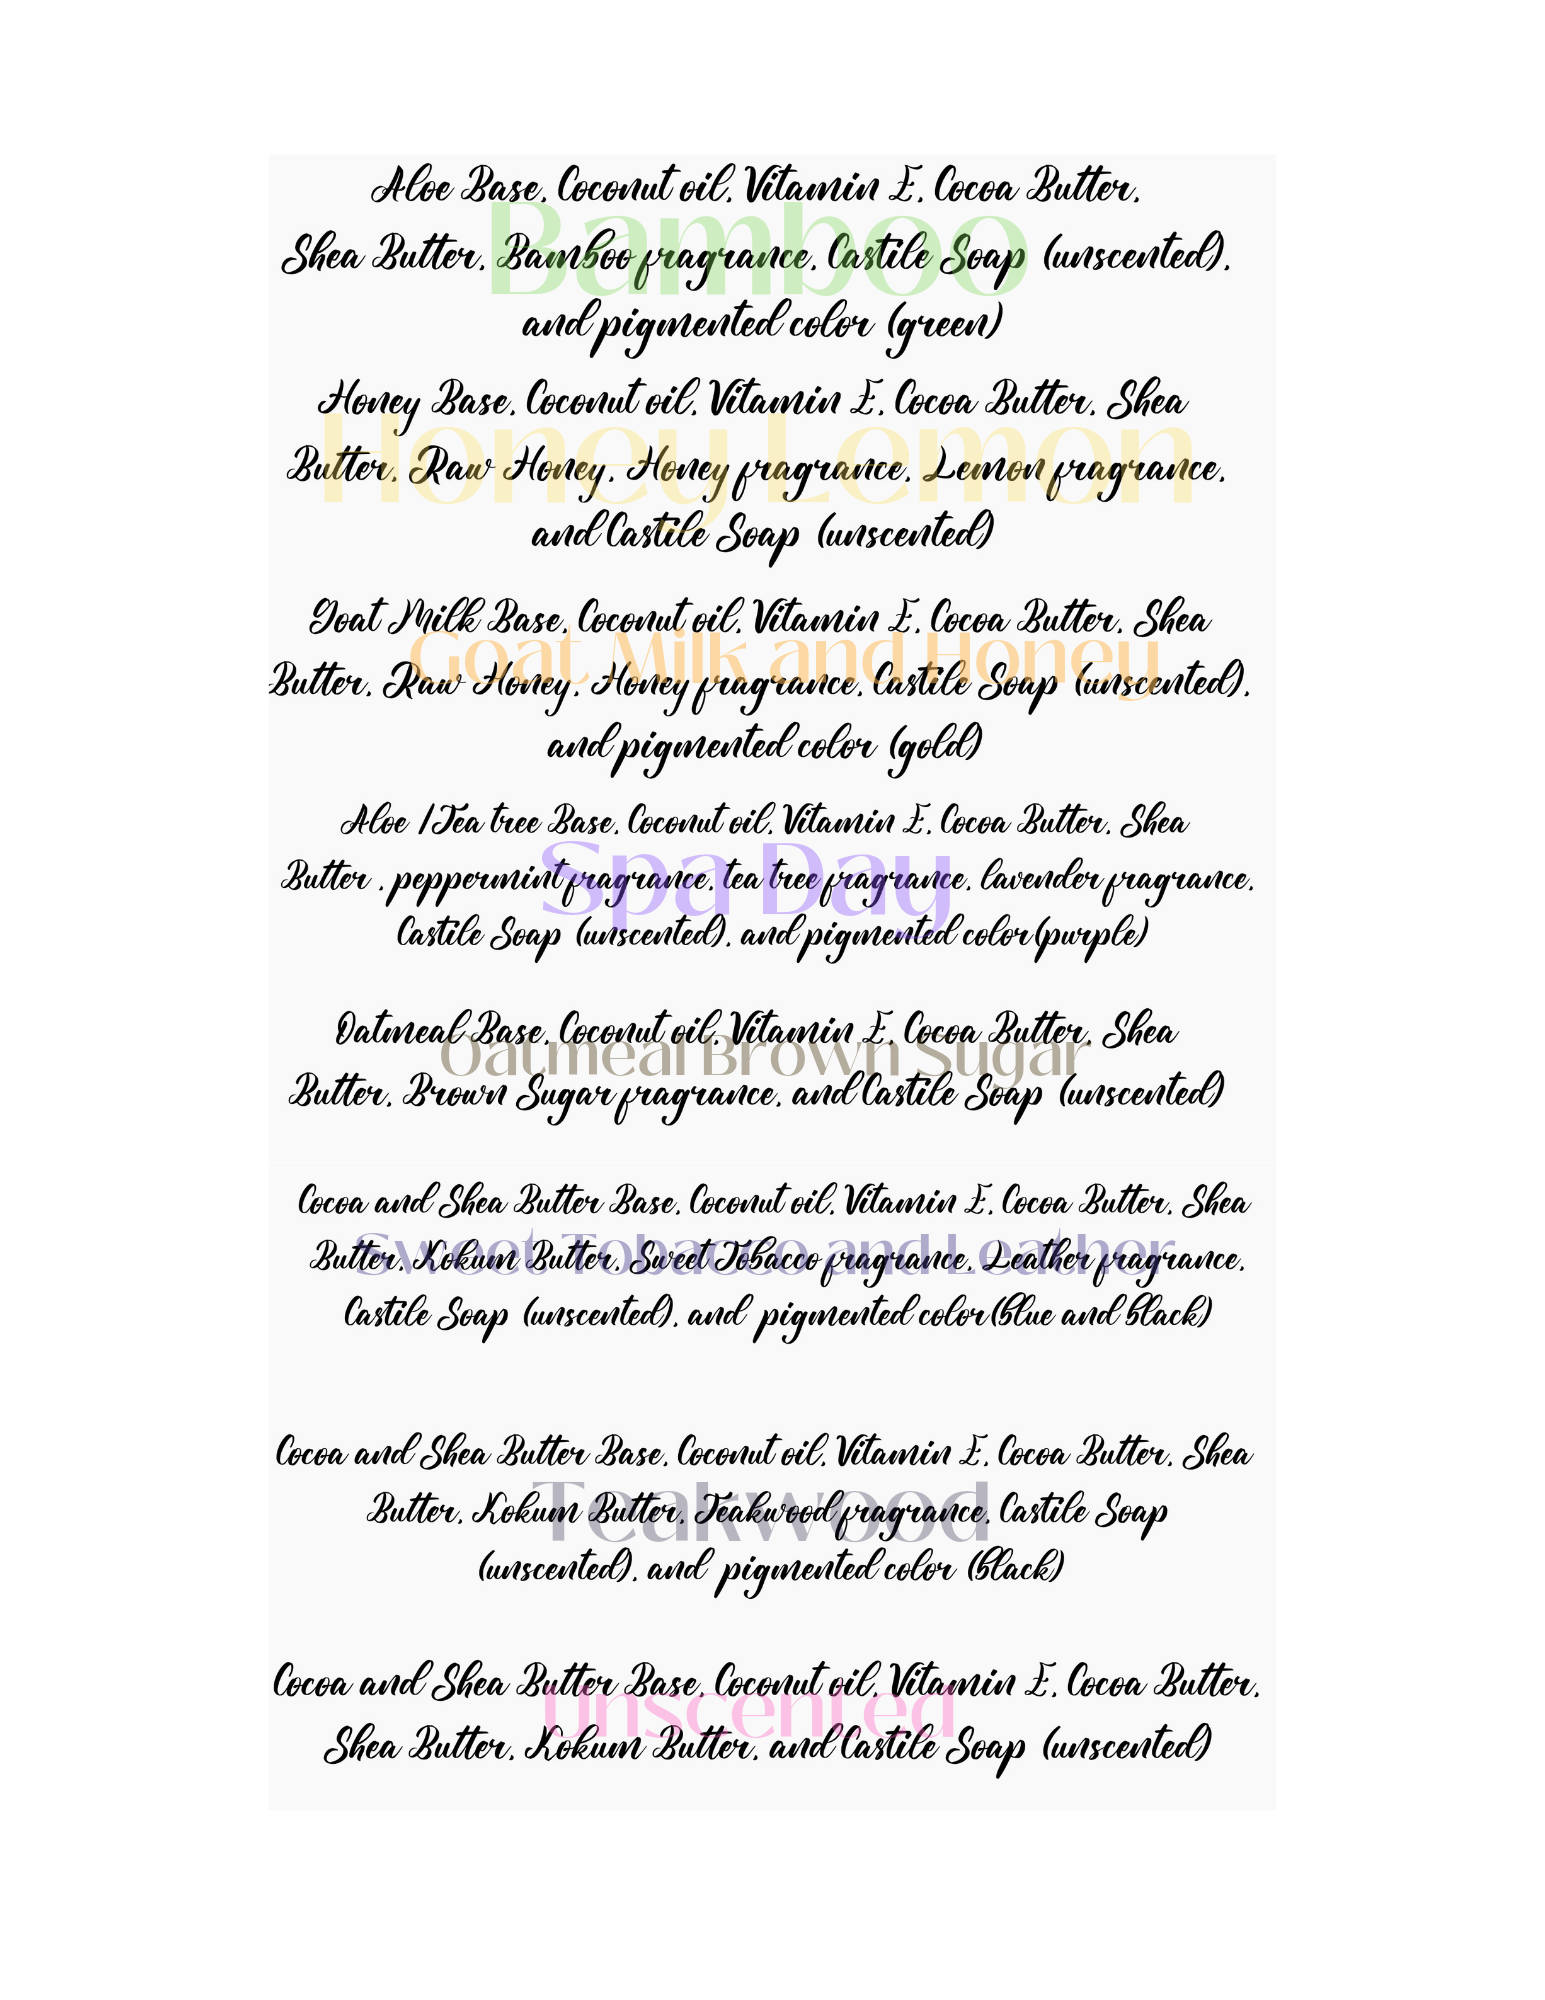 Bamboo
Aloe Base, Coconut oil, Vitamin E, Cocoa Butter,
Shea Butter, Bamboo fragrance, Castile Soap (unscented),
and pigmented color (green)
Honey Lemon
Honey Base, Coconut oil, Vitamin E, Cocoa Butter, Shea
Butter, Raw Honey, Honey fragrance, Lemon fragrance,
and Castile Soap (unscented)
Goat Milk and Honey
Goat Milk Base, Coconut oil, Vitamin E, Cocoa Butter, Shea
Butter, Raw Honey, Honey fragrance, Castile Soap (unscented),
and pigmented color (gold)
Spa Day
Aloe /Tea tree Base, Coconut oil, Vitamin E, Cocoa Butter, Shea
Butter , peppermint fragrance, tea tree fragrance, lavender fragrance,
Castile Soap (unscented), and pigmented color(purple)
Oatmeal Brown Sugar
Oatmeal Base, Coconut oil, Vitamin E, Cocoa Butter, Shea
Butter, Brown Sugar fragrance, and Castile Soap (unscented)
Sweet Tobacco and Leather
Cocoa and Shea Butter Base, Coconut oil, Vitamin E, Cocoa Butter, Shea
Butter, Kokum Butter, Sweet Tobacco fragrance, Leather fragrance,
Castile Soap (unscented), and pigmented color(blue and black)
Teakwood
Cocoa and Shea Butter Base, Coconut oil, Vitamin E, Cocoa Butter, Shea
Butter, Kokum Butter, Teakwood fragrance, Castile Soap
(unscented), and pigmented color (black)
Unscented
Cocoa and Shea Butter Base, Coconut oil, Vitamin E, Cocoa Butter,
Shea Butter, Kokum Butter, and Castile Soap (unscented)